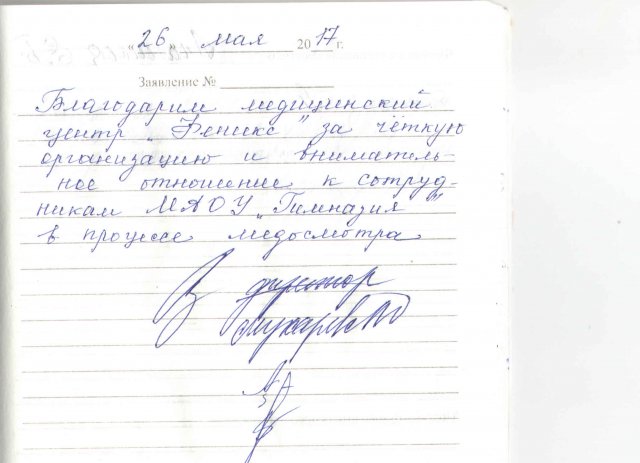 26 мая 2017 г.
Заявление №
Благодарим медицинский
центр „Феникс" за чёткую
организацию и вниматель-
ное отношение к сотруд-
никам МАОУ „Гимназия"
в процессе медосмотра
директор